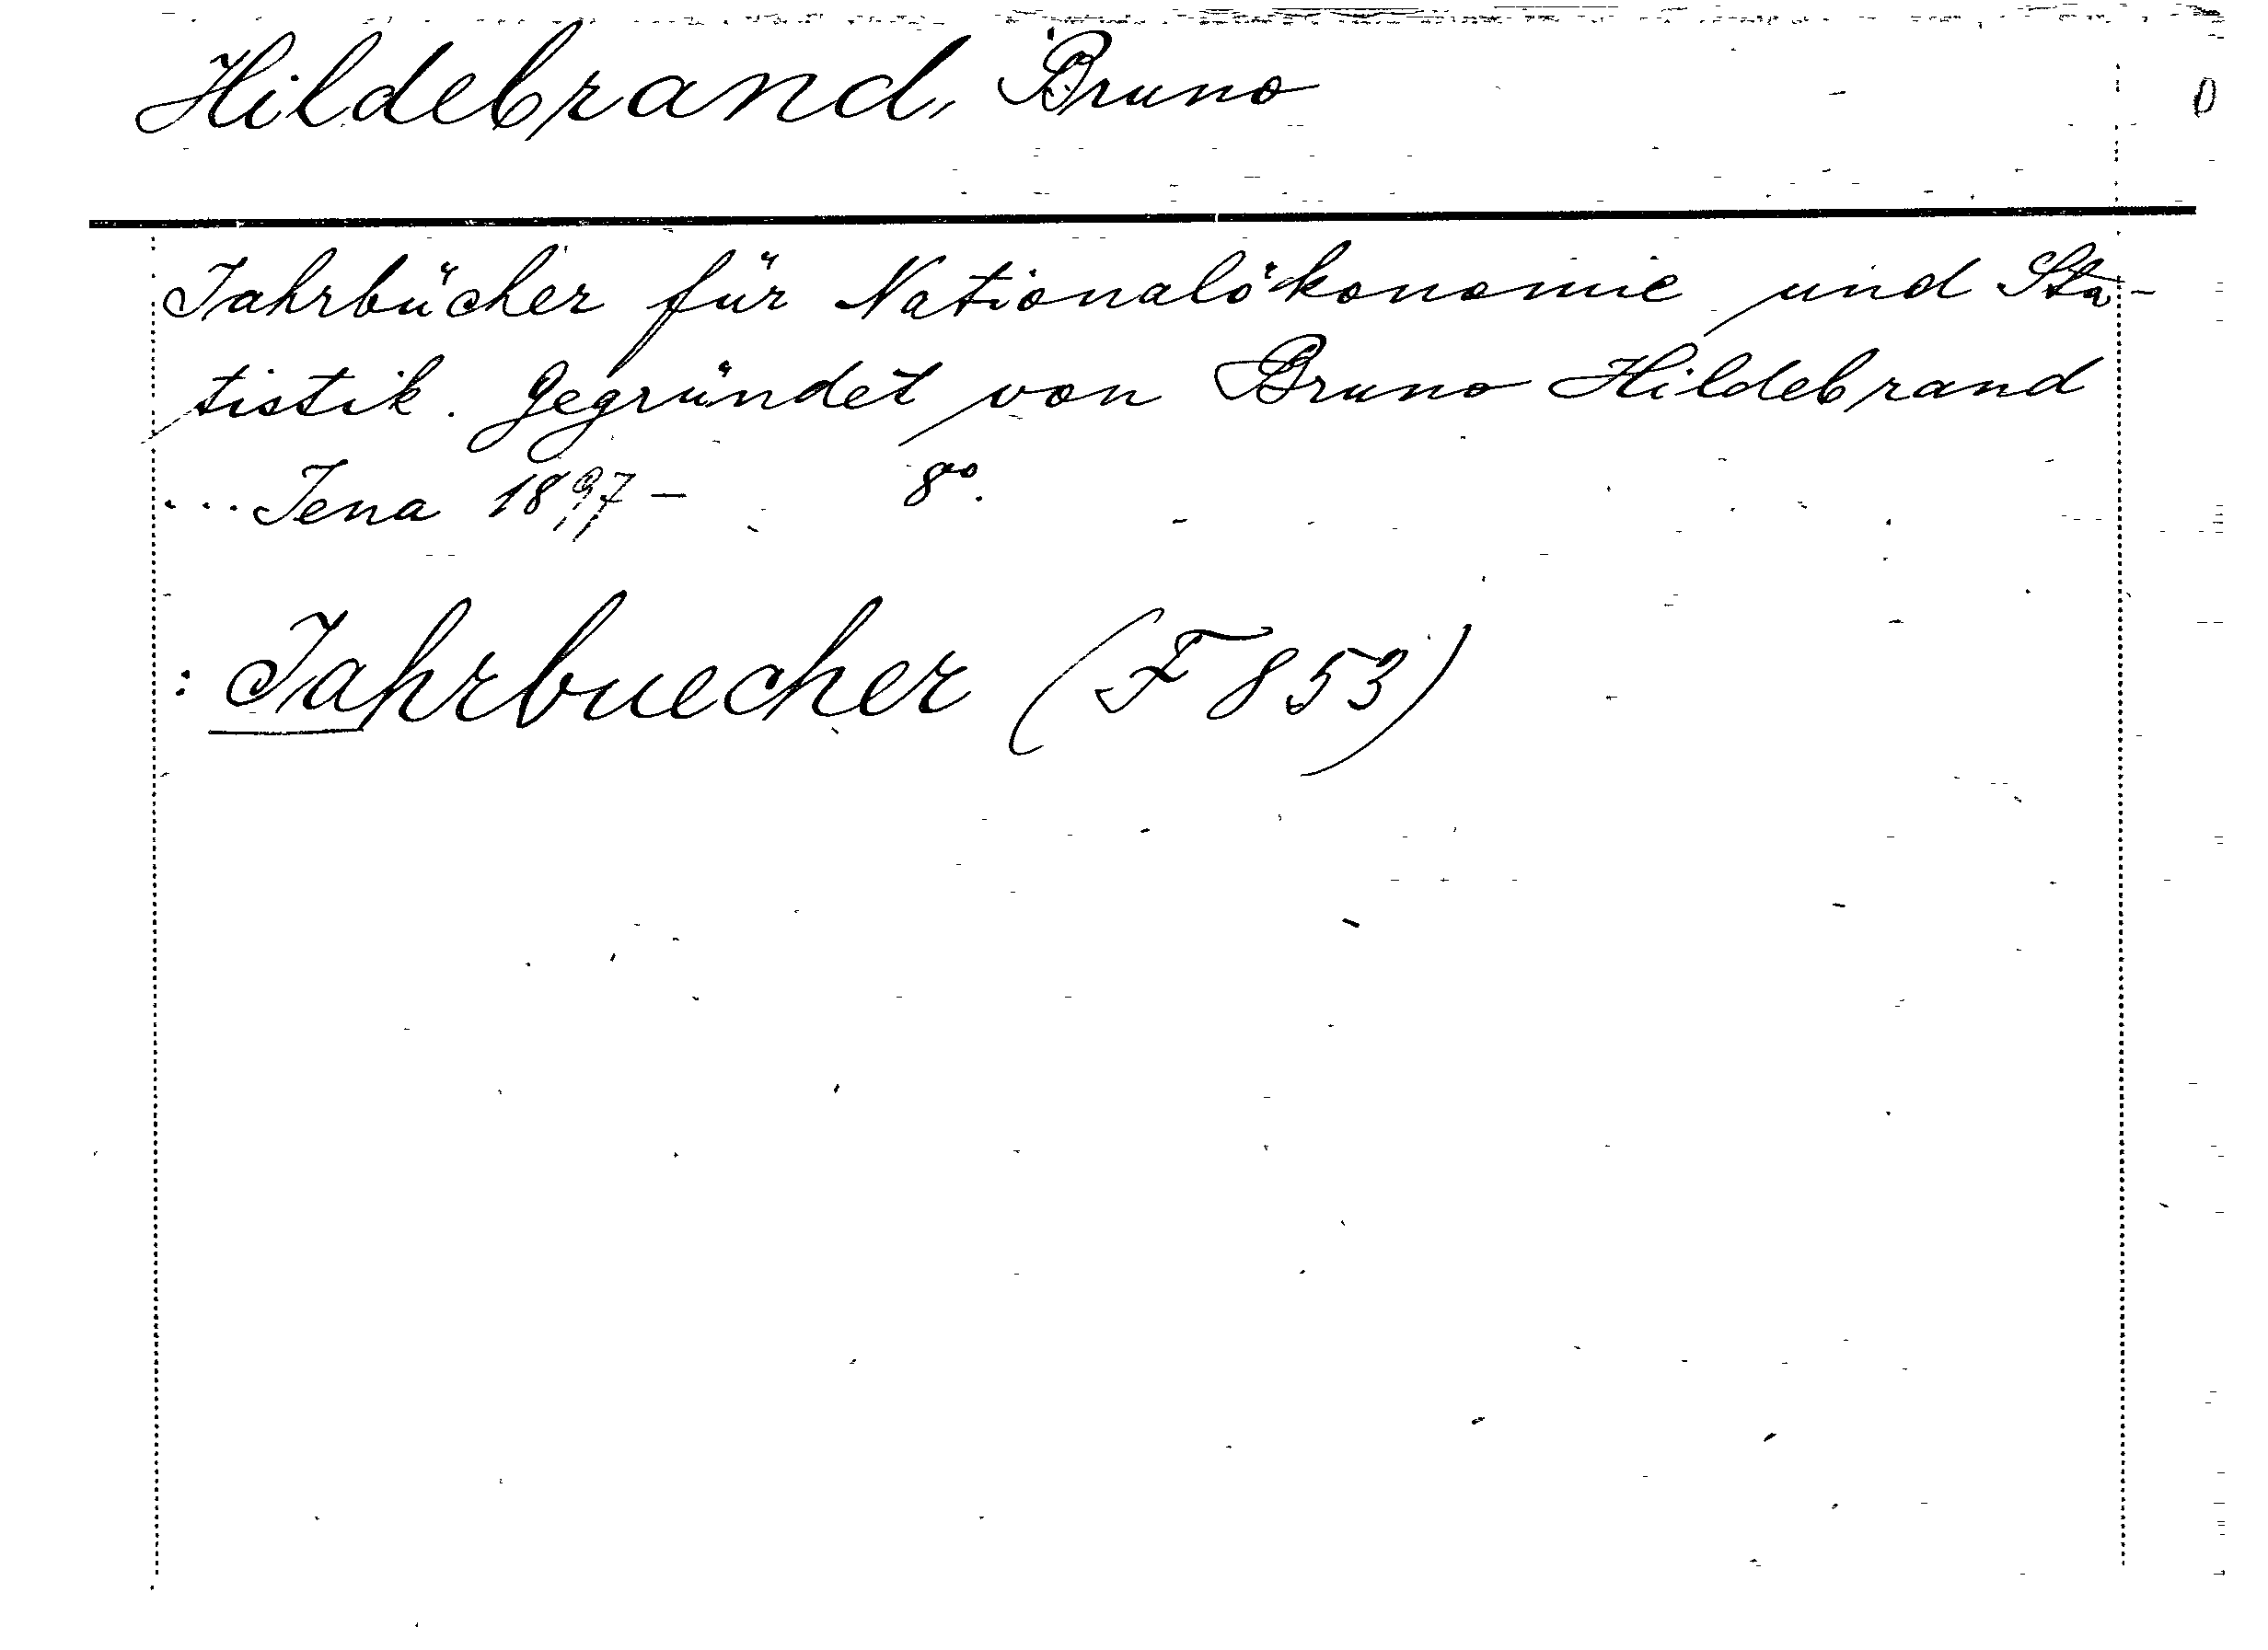 Hildebrand, Bruno
Jahrbücher für Nationalökonomie und Sta-
tistik. Gegründet von Bruno Hildebrand
... Jena 1897 - 8°.
: Jahrbuecher (F 853)